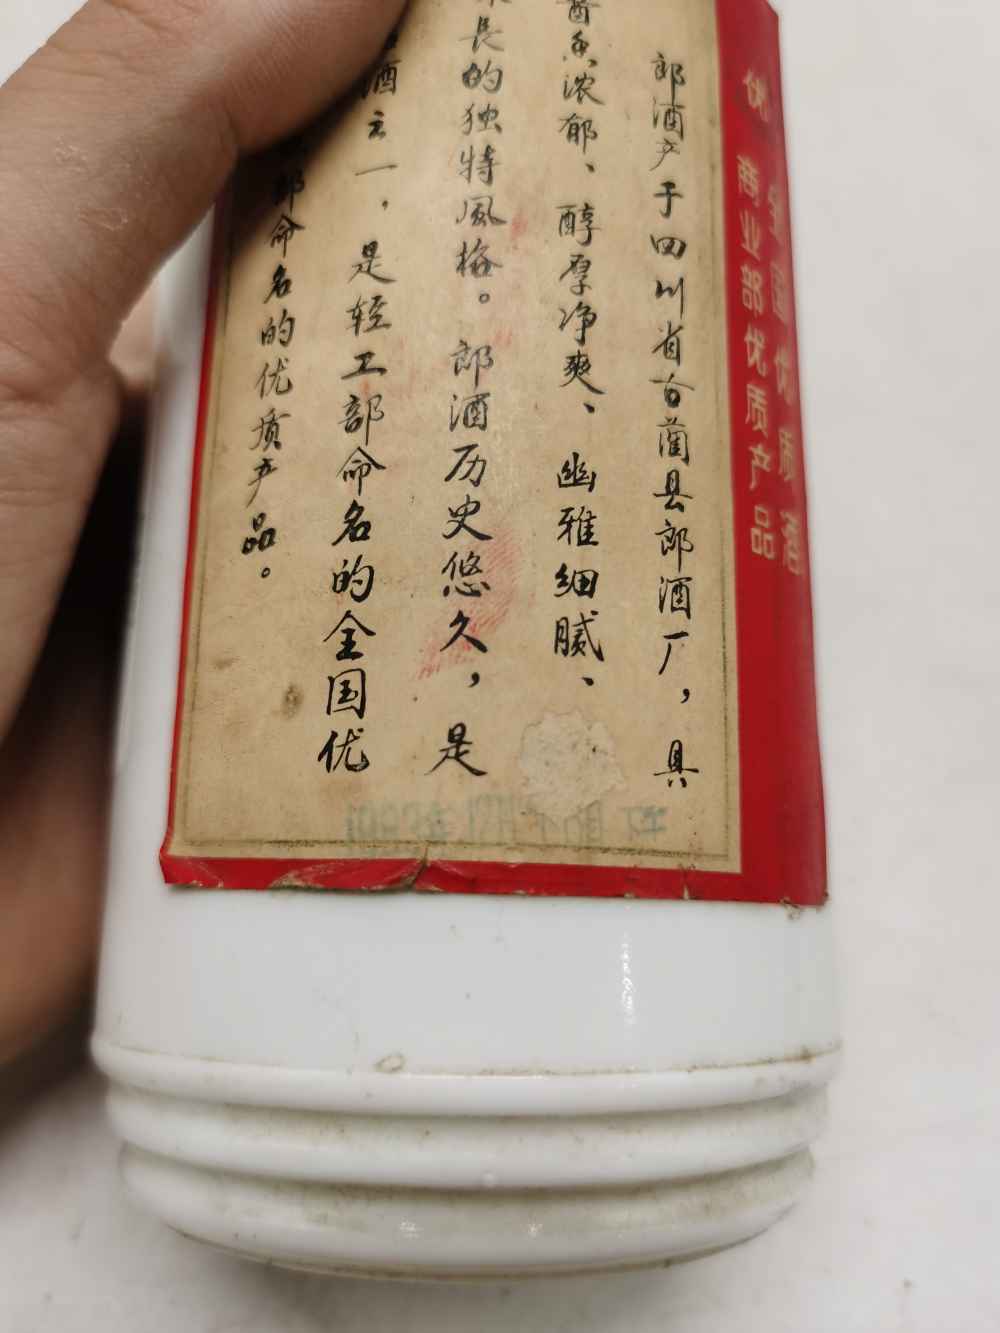 优
全国优质酒
商业部优质产品
郎酒产于四川省古蔺县郎酒厂，具
酱香浓郁、醇厚净爽、幽雅细腻、
长的独特風格。郎酒历史悠久，是
酒之一，是轻工部命名的全国优
部命名的优质产品。